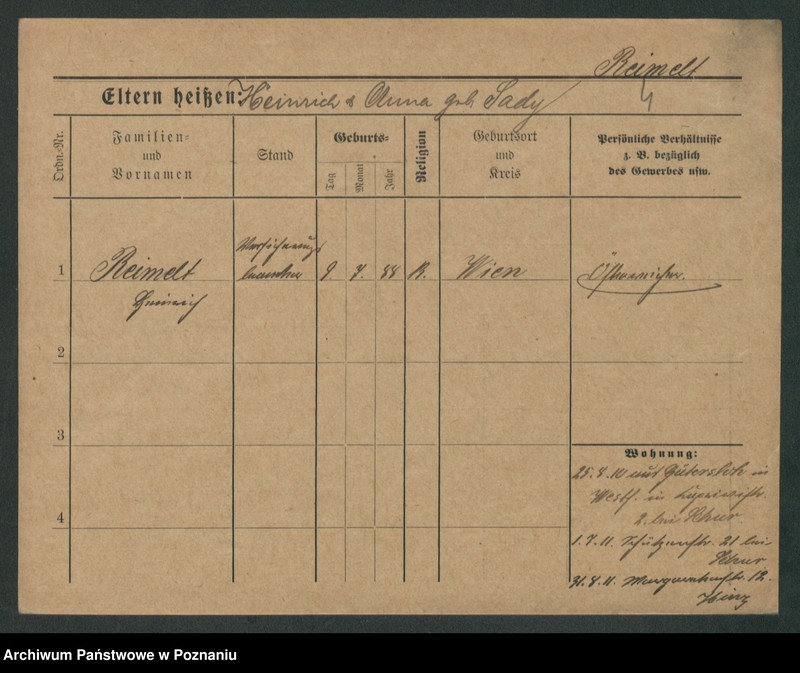 Reimelt
Eltern heißen: Heinrich & Anna geb. Sady
Ordn.-Nr.
Familien- und Vornamen
Stand
Geburts-
Tag
Monat
Jahr
Religion
Geburtsort und Kreis
Persönliche Verhältnisse
z. B. bezüglich
des Gewerbes usw.
Versicherungs
1 Reimelt beamter 9. 4. 88 K. Wien Österreicher.
Heinrich
2
3
4
Wohnung:
25. 8. 10 aus Gütersloh in
Westf. in
2. bei
1. 7. 11. Schützenstr. 21 bei
31. 8. 11. Margarethenstr. 12.
Hinz
Archiwum Państwowe w Poznaniu